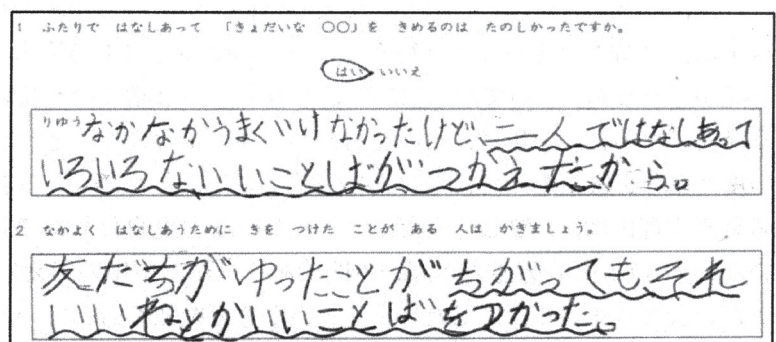 1 ふたりで はなしあって 「きょだいな ○○」を きめるのは たのしかったですか。
はい いいえ
りゆう なかなかうまくいけなかったけど、二人ではなしあって
いろいろないいことばがつかえたから。
2 なかよく はなしあうために きを つけた ことが ある 人は かきましょう。
友だちがゆったことがちがってもそれ
いいねとかいいことばをつかった。